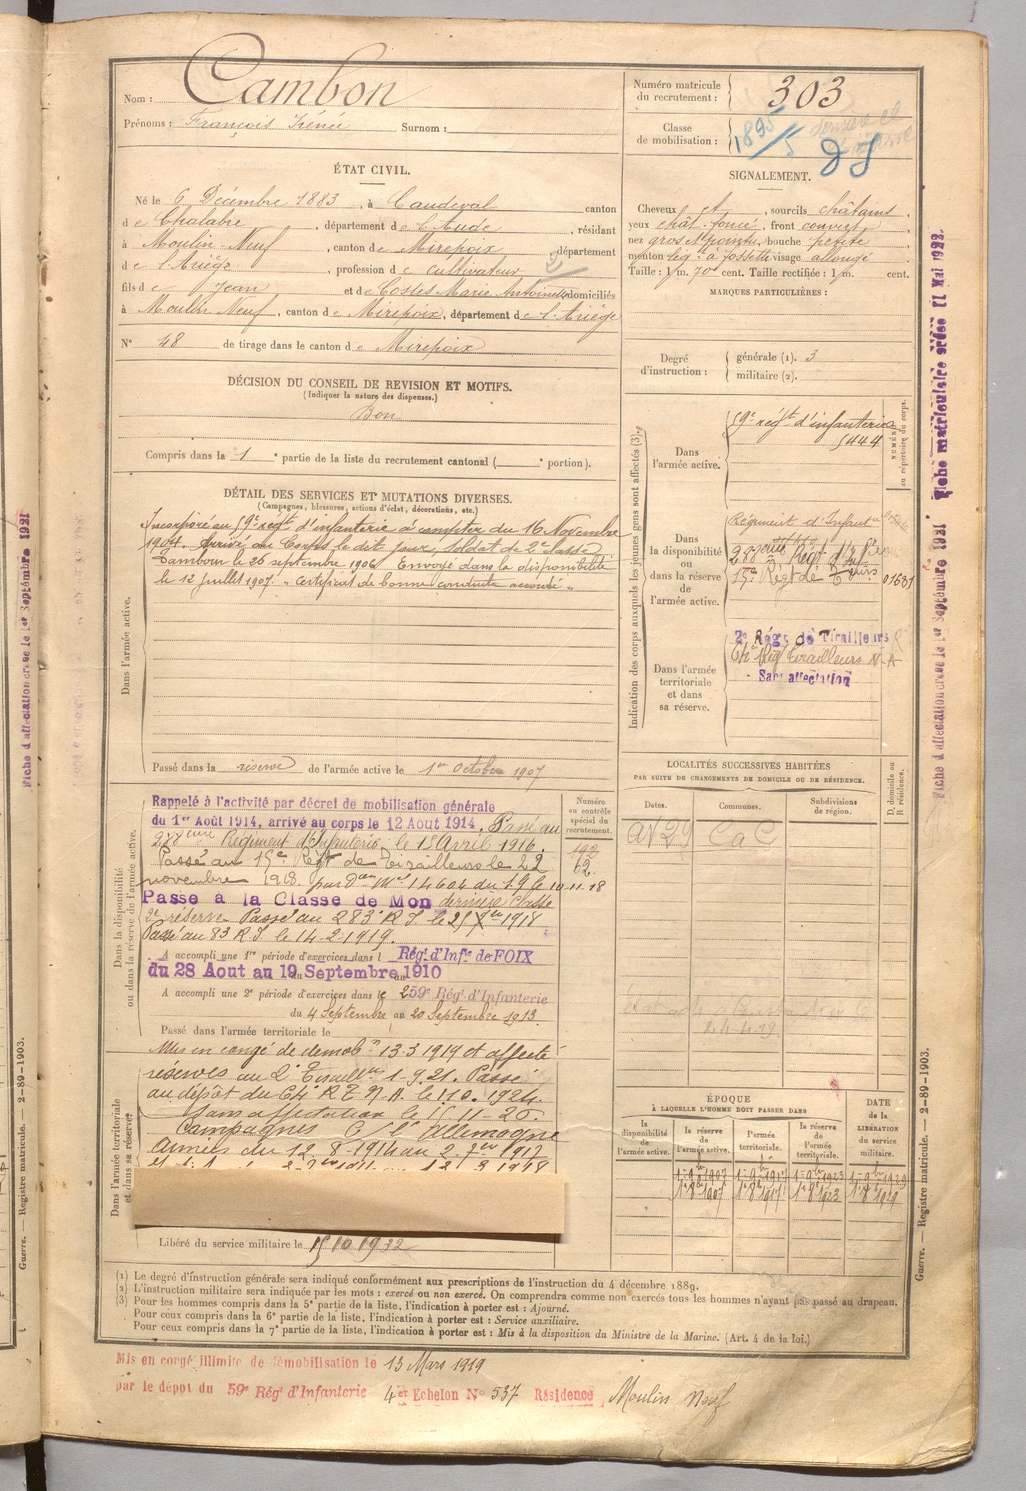 Nom : Cambon
Prénoms : François Irénée Surnom :
Numéro matricule
du recrutement : 303
Classe
de mobilisation : 1895/5
dernière cl
ÉTAT CIVIL.
Né le 6 Décembre 1883, à Caudeval canton
de Chalabre, département de l'Aude, résidant
à Moulin-Neuf, canton de Mirepoix département
de l'Ariège, profession de cultivateur
fils de Jean et de Costes Marie Antoinette domiciliés
à Moulin Neuf, canton de Mirepoix, département de l'Ariège
N° 48 de tirage dans le canton de Mirepoix
SIGNALEMENT.
Cheveux et, sourcils châtains,
yeux chât. foncé, front couvert,
nez gros et pointu, bouche petite,
menton lég. à fossette visage allongé.
Taille : 1 m. 70 cent. Taille rectifiée : 1 m. cent.
MARQUES PARTICULIÈRES :
Degré
d'instruction :
générale (1). 3
militaire (2).
DÉCISION DU CONSEIL DE REVISION ET MOTIFS.
(Indiquer la nature des dispenses.)
Bon
Compris dans la 1e partie de la liste du recrutement cantonal ( e portion).
DÉTAIL DES SERVICES ET MUTATIONS DIVERSES.
(Campagnes, blessures, actions d'éclat, décorations, etc.)
Dans l'armée active.
Incorporé au 59e régt d'infanterie à compter du 16 Novembre
1904. Arrivé au Corps le dit jour, Soldat de 2e classe
Tambour le 26 septembre 1906 Envoyé dans la disponibilité
le 12 Juillet 1907. "Certificat de bonne conduite accordé".
Passé dans la réserve de l'armée active le 1er Octobre 1907
Indication des corps auxquels les jeunes gens sont affectés (3).
NUMÉRO
au répertoire du corps.
Dans
l'armée active.
59e régt d'infanterie
5444
Dans
la disponibilité
ou
dans la réserve
de
l'armée active.
Régiment d'Infant
288eme Régt d'Inf
15e Régt de Tirs 01681
Dans l'armée
territoriale
et dans
sa réserve.
2e Régt de Tirailleurs
6e Rég Tirailleurs N-A
Sans affectation
LOCALITÉS SUCCESSIVES HABITÉES
PAR SUITE DE CHANGEMENTS DE DOMICILE OU DE RÉSIDENCE.
Dates. Communes. Subdivisions
de région.
D. domicile ou
R. résidence.
Dans la disponibilité
ou dans la réserve de l'armée active.
Numéro
au contrôle
spécial du
recrutement.
192
62.
Rappelé à l'activité par décret de mobilisation générale
du 1er Août 1914, arrivé au corps le 12 Aout 1914. Passé au
288eme Régiment d'Infanterie le 15 Avril 1916.
Passé au 15e Régt de Tirailleurs le 22
novembre 1918. par Don Mle 14604 du 19e le 10-11-18
Passé à la Classe de Mon dernière classe
2e réserve Passé au 283e R I le 25 Xbre 1918
Passé au 83 R I le 14-2-1919.
A accompli une 1re période d'exercices dans l Rég. d'Infie de FOIX
du 28 Aout au 19 Septembre 1910
A accompli une 2e période d'exercices dans le 259e Rég. d'Infanterie
du 4 Septembre au 20 Septembre 1913.
Passé dans l'armée territoriale le
Dans l'armée territoriale
et dans sa réserve.
Mis en congé de démobon 13-3 1919 et affecté
réserves au 2e Tirailleurs 1-9.21. Passé
au dépôt du 6e R T N.A. le 1.10.1924.
Sans affectation le 15.11-26.
Campagnes C/ l'Allemagne
Armées du 12-8-1914 au
Libéré du service militaire le 15 10 1932
ÉPOQUE
À LAQUELLE L'HOMME DOIT PASSER DANS
la
disponibilité
de
l'armée active.
la réserve
de
l'armée active.
l'armée
territoriale.
la réserve
de l'armée
territoriale.
DATE
de la
LIBÉRATION
du service
militaire.
1er 8bre 1907 1er 8bre 1917 1er 8bre 1923 1er 8bre 1929
(1) Le degré d'instruction générale sera indiqué conformément aux prescriptions de l'instruction du 4 décembre 1889.
(2) L'instruction militaire sera indiquée par les mots : exercé ou non exercé. On comprendra comme non exercés tous les hommes n'ayant pas passé au drapeau.
(3) Pour les hommes compris dans la 5e partie de la liste, l'indication à porter est : Ajourné.
Pour ceux compris dans la 6e partie de la liste, l'indication à porter est : Service auxiliaire.
Pour ceux compris dans la 7e partie de la liste, l'indication à porter est : Mis à la disposition du Ministre de la Marine. (Art. 4 de la loi.)
Mis en congé illimité de démobilisation le 13 Mars 1919
par le dépôt du 59e Rég. d'Infanterie 4er Echelon No 537 Résidence Moulin Neuf
Fiche matriculaire créée 11 Mai 1922.
Fiche d'affectation créée le 1er Septembre 1921
Guerre. — Registre matricule. — 2-89-1903.
Fiche d'affectation créée le 1er Septembre 1921
Guerre. — Registre matricule. — 2-89-1903.